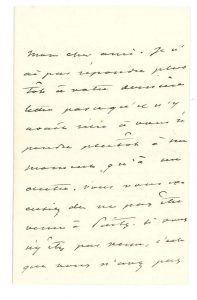 Mon cher ami. Je n'
ai pas répondu plus
tôt à votre dernière
lettre parce qu'il n'y
avait rien à vous ré
pondre plutôt à un
moment qu'à un
autre. Vous vous ex
cusez de ne pas être
venu à Si vous
n'y êtes pas venu, c'est
que vous n'avez pas